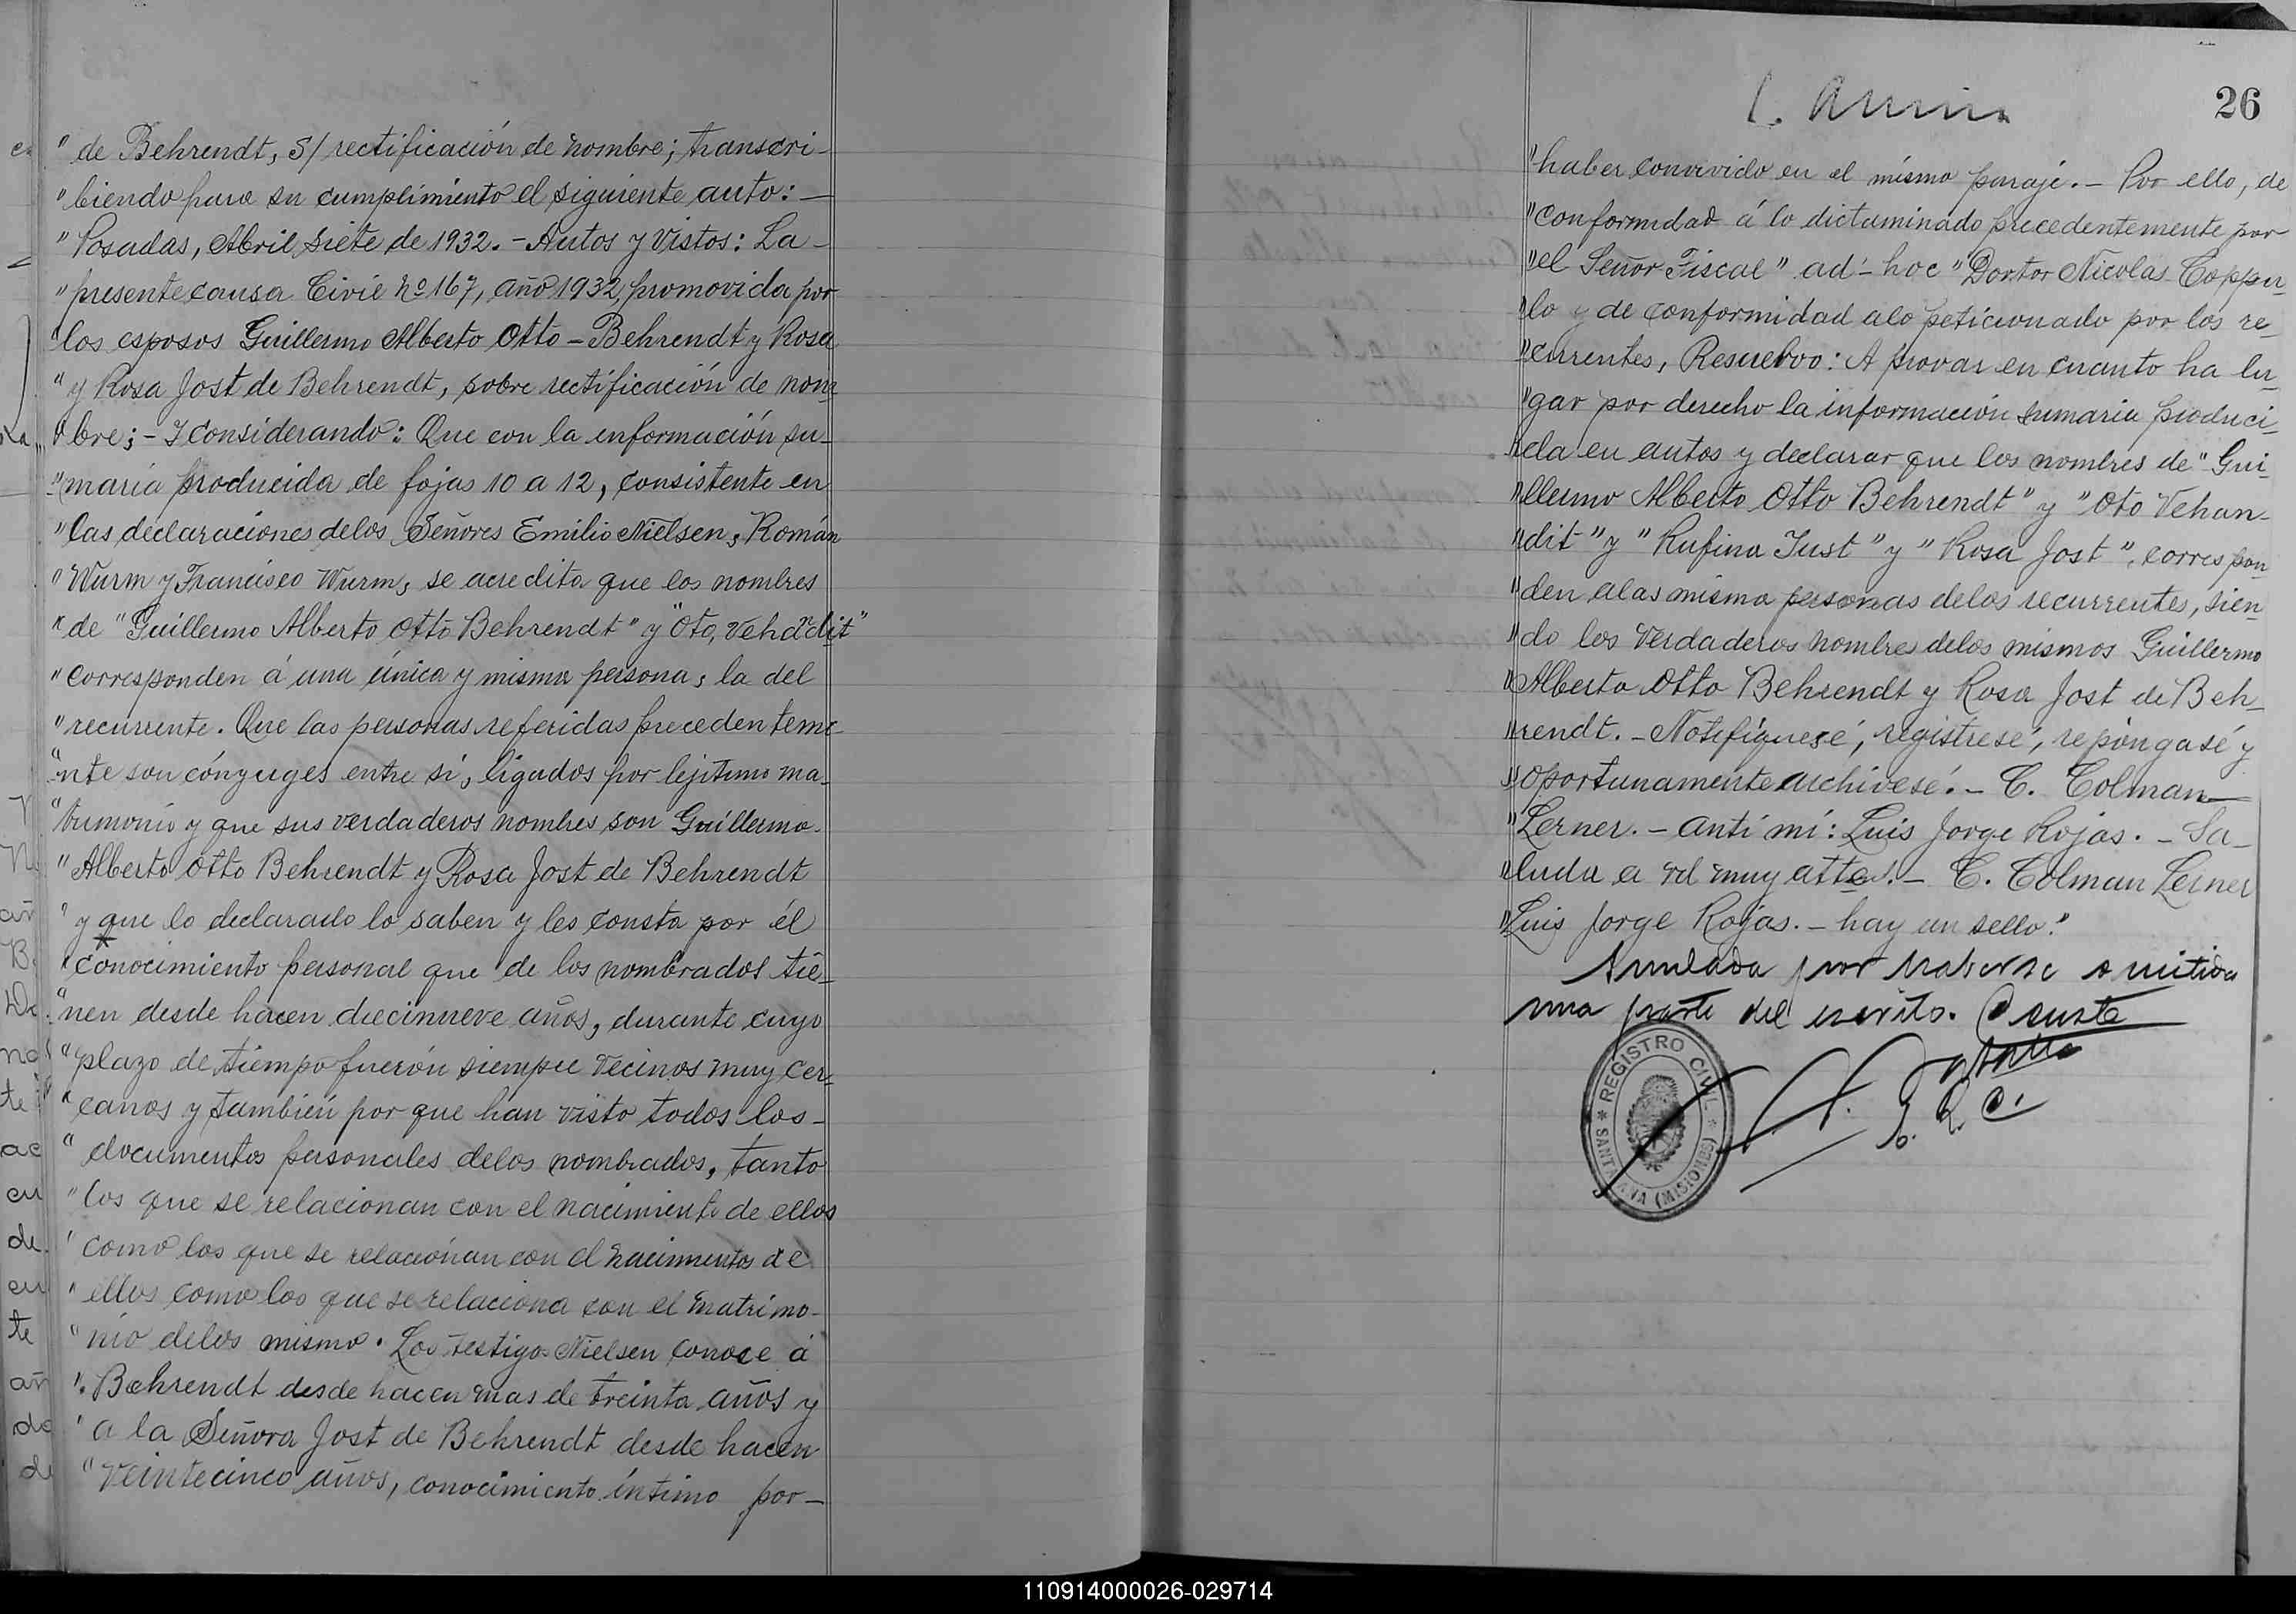 " de Behrendt, S/ rectificación de nombre; transcri-
" biendo para su cumplimiento el siguiente auto: —
" Posadas, Abril siete de 1932. - Autos y Vistos: La -
" presente causa Civil Nº 167, año 1932, promovida por
" los esposos Guillermo Alberto Otto - Behrendt y Rosa
" y Rosa Jost de Behrendt, sobre rectificación de nom-
" bre; - Y Considerando: Que con la información su-
" maria producida de fojas 10 a 12, consistente en
" las declaraciones delos Señores Emilio Nielsen, Román
" Wurm y Francisco Wurm, se acredita que los nombres
" de "Guillermo Alberto Otto Behrendt" y "Oto,
" corresponden á una única y misma persona, la del
" recurrente. Que las personas referidas precedenteme
" nte son cónyuges entre sí, ligados por lejitimo ma-
" trimonio y que sus verdaderos nombres son Guillermo
" Alberto Otto Behrendt y Rosa Jost de Behrendt
" y que lo declarado lo saben y les consta por él
" conocimiento personal que de los nombrados tie-
" nen desde hacen diecinueve años, durante cuyo
" plazo de tiempo fuerón siempre vecinos muy cer-
" canos y también por que han visto todos los -
" documentos personales delos nombrados, tanto
" los que se relacionan con el nacimiento de ellos
" como los que se relaciónan con el nacimientos de
" ellos como los que se relaciona con el matrimo-
" nio delos mismo. Los testigos Nielsen conoce á
" Behrendt desde hacen mas de treinta años y
" a la Señora Jost de Behrendt desde hacen
" veintecinco años, conocimiento íntimo por -
26
" haber convivido en el mismo paraje. - Por ello, de
" conformidad á lo dictaminado precedentemente por
" el Señor Fiscal " ad - hoc " Doctor Nicolas Coppu-
" lo y de conformidad alo peticionado por los re-
" currentes, Resuelvo: A provar en cuanto ha lu-
" gar por derecho la información sumaria produci-
" da en autos y declarar que los nombres de " Gui-
" llermo Alberto Otto Behrendt" y " Oto Vehan-
" dit " y " Rufina Just " y " Rosa Jost ", correspon-
" den alas misma personas delos recurrentes, sien-
" do los verdaderos nombres delos mismos Guillermo
" Alberto Otto Behrendt y Rosa Jost de Beh-
" rendt. - Notifíquesé, registresé, repóngasé y
" oportunamente archivesé. - C. Colman -
" Lerner. - Antí mí: Luis Jorge Rojas. - Sa-
" luda a Vd muy atte. - C. Colman Lerner
" Luis Jorge Rojas. - hay un sello."
Anulada por haberse omitido
una parte del escrito.
REGISTRO CIVIL
SANTA ANA (MISIONES)
110914000026-029714